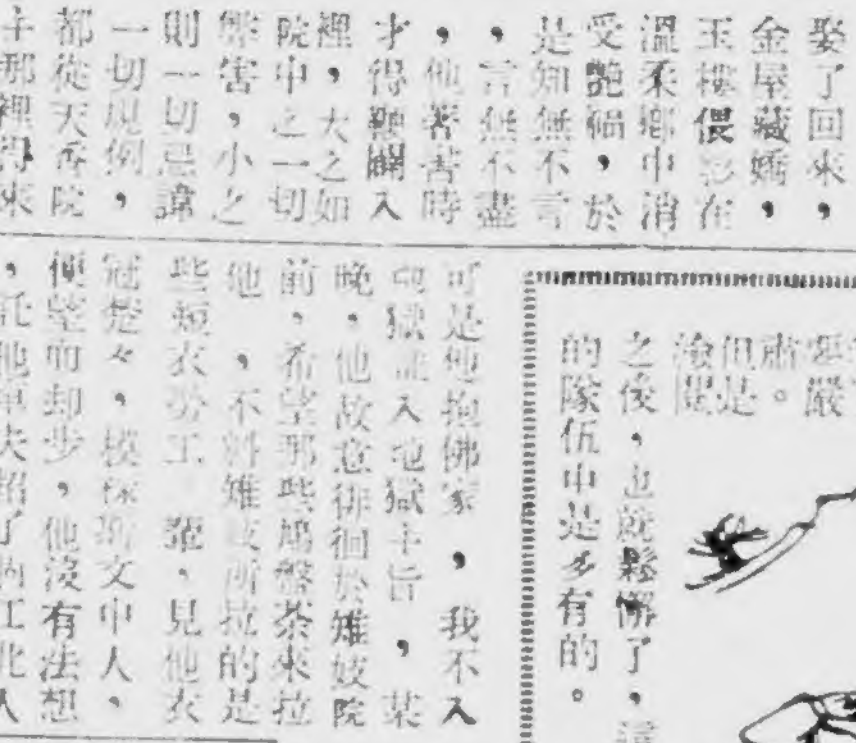 娶了回來，
金屋藏嬌，
玉樓偎影在
溫柔鄉中消
受艷福，於
是知無不言
，言無不盡
，他著書時
才得闖入
裡，大之如
院中之一切
弊害，小之
則一切忌諱
一切規例，
都從天香院
那裡得來
可是他抱佛家，我不入
地獄誰入地獄主旨，某
晚，他故意徘徊於雉妓院
前，希望那些鳩盤荼來拉
他，不料雉妓所拉的是
些短衣勞工輩，見他衣
冠楚々，模樣斯文中人，
便望而却步，他沒有法想
，託他車夫招了江北人
嚴
肅。
但是
之後，也就鬆懈了，這
的隊伍中是多有的。